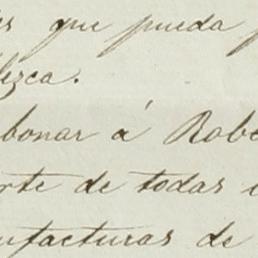 es que pueda
lezca.
bonar á Robe
rte de todas
ufacturas de